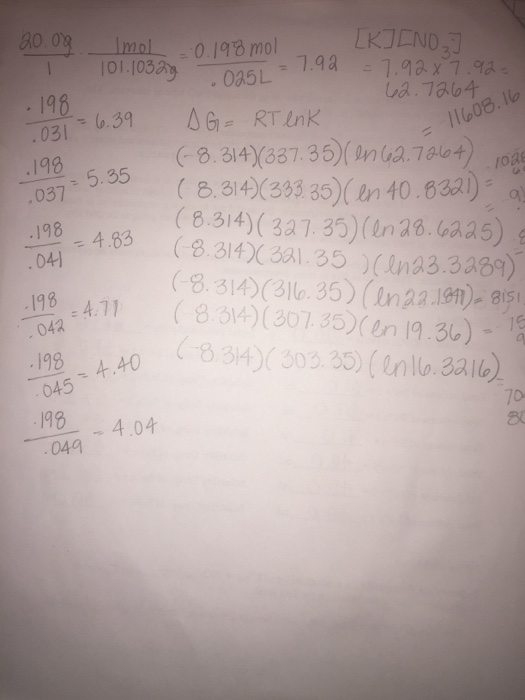 20.0g/1 · 1mol/101.1032g = 0.198 mol/.025L = 7.92
[K][NO3-]
= 7.92 x 7.92 =
62.7264
.198/.031 = 6.39
ΔG = RTlnK
= 11608.16
(-8.314)(337.35)(ln62.7264)
.198/.037 = 5.35
(8.314)(333.35)(ln 40.8321) =
(8.314)(327.35)(ln28.6225)
.198/.041 = 4.83
(-8.314)(321.35)(ln23.3289)
.198/.042 = 4.71
(-8.314)(316.35)(ln22.1841) = 8151
(-8.314)(307.35)(ln 19.36) =
.198/.045 = 4.40
(-8.314)(303.35)(ln16.3216)
.198/.049 = 4.04